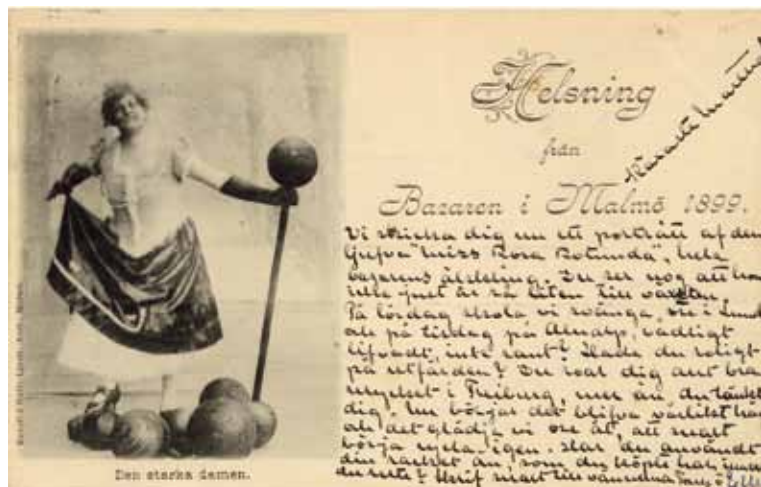 Helsning
från
Basaren i Malmö 1899.
Vi skicka dig nu ett porträtt af den
"miss Rosa Rotunda", hela
basarens älskling. Du ser nog att hon
icke just är så liten till växten.
På lördag skola vi svänga oss i Lund
och på tisdag på Alnarp, vådligt
lifvadt, inte sant? Hade du roligt
på utfärden? Du roar dig allt bra
mycket i Freiburg, mer än du tänkt
dig. Nu börjar det blifva vårlikt här
och det glädja vi oss åt, att snart
börja igen. Har du användt
din racket än, som du köpte här,
du reste? Skrif snart till vännerna
Den starka damen.